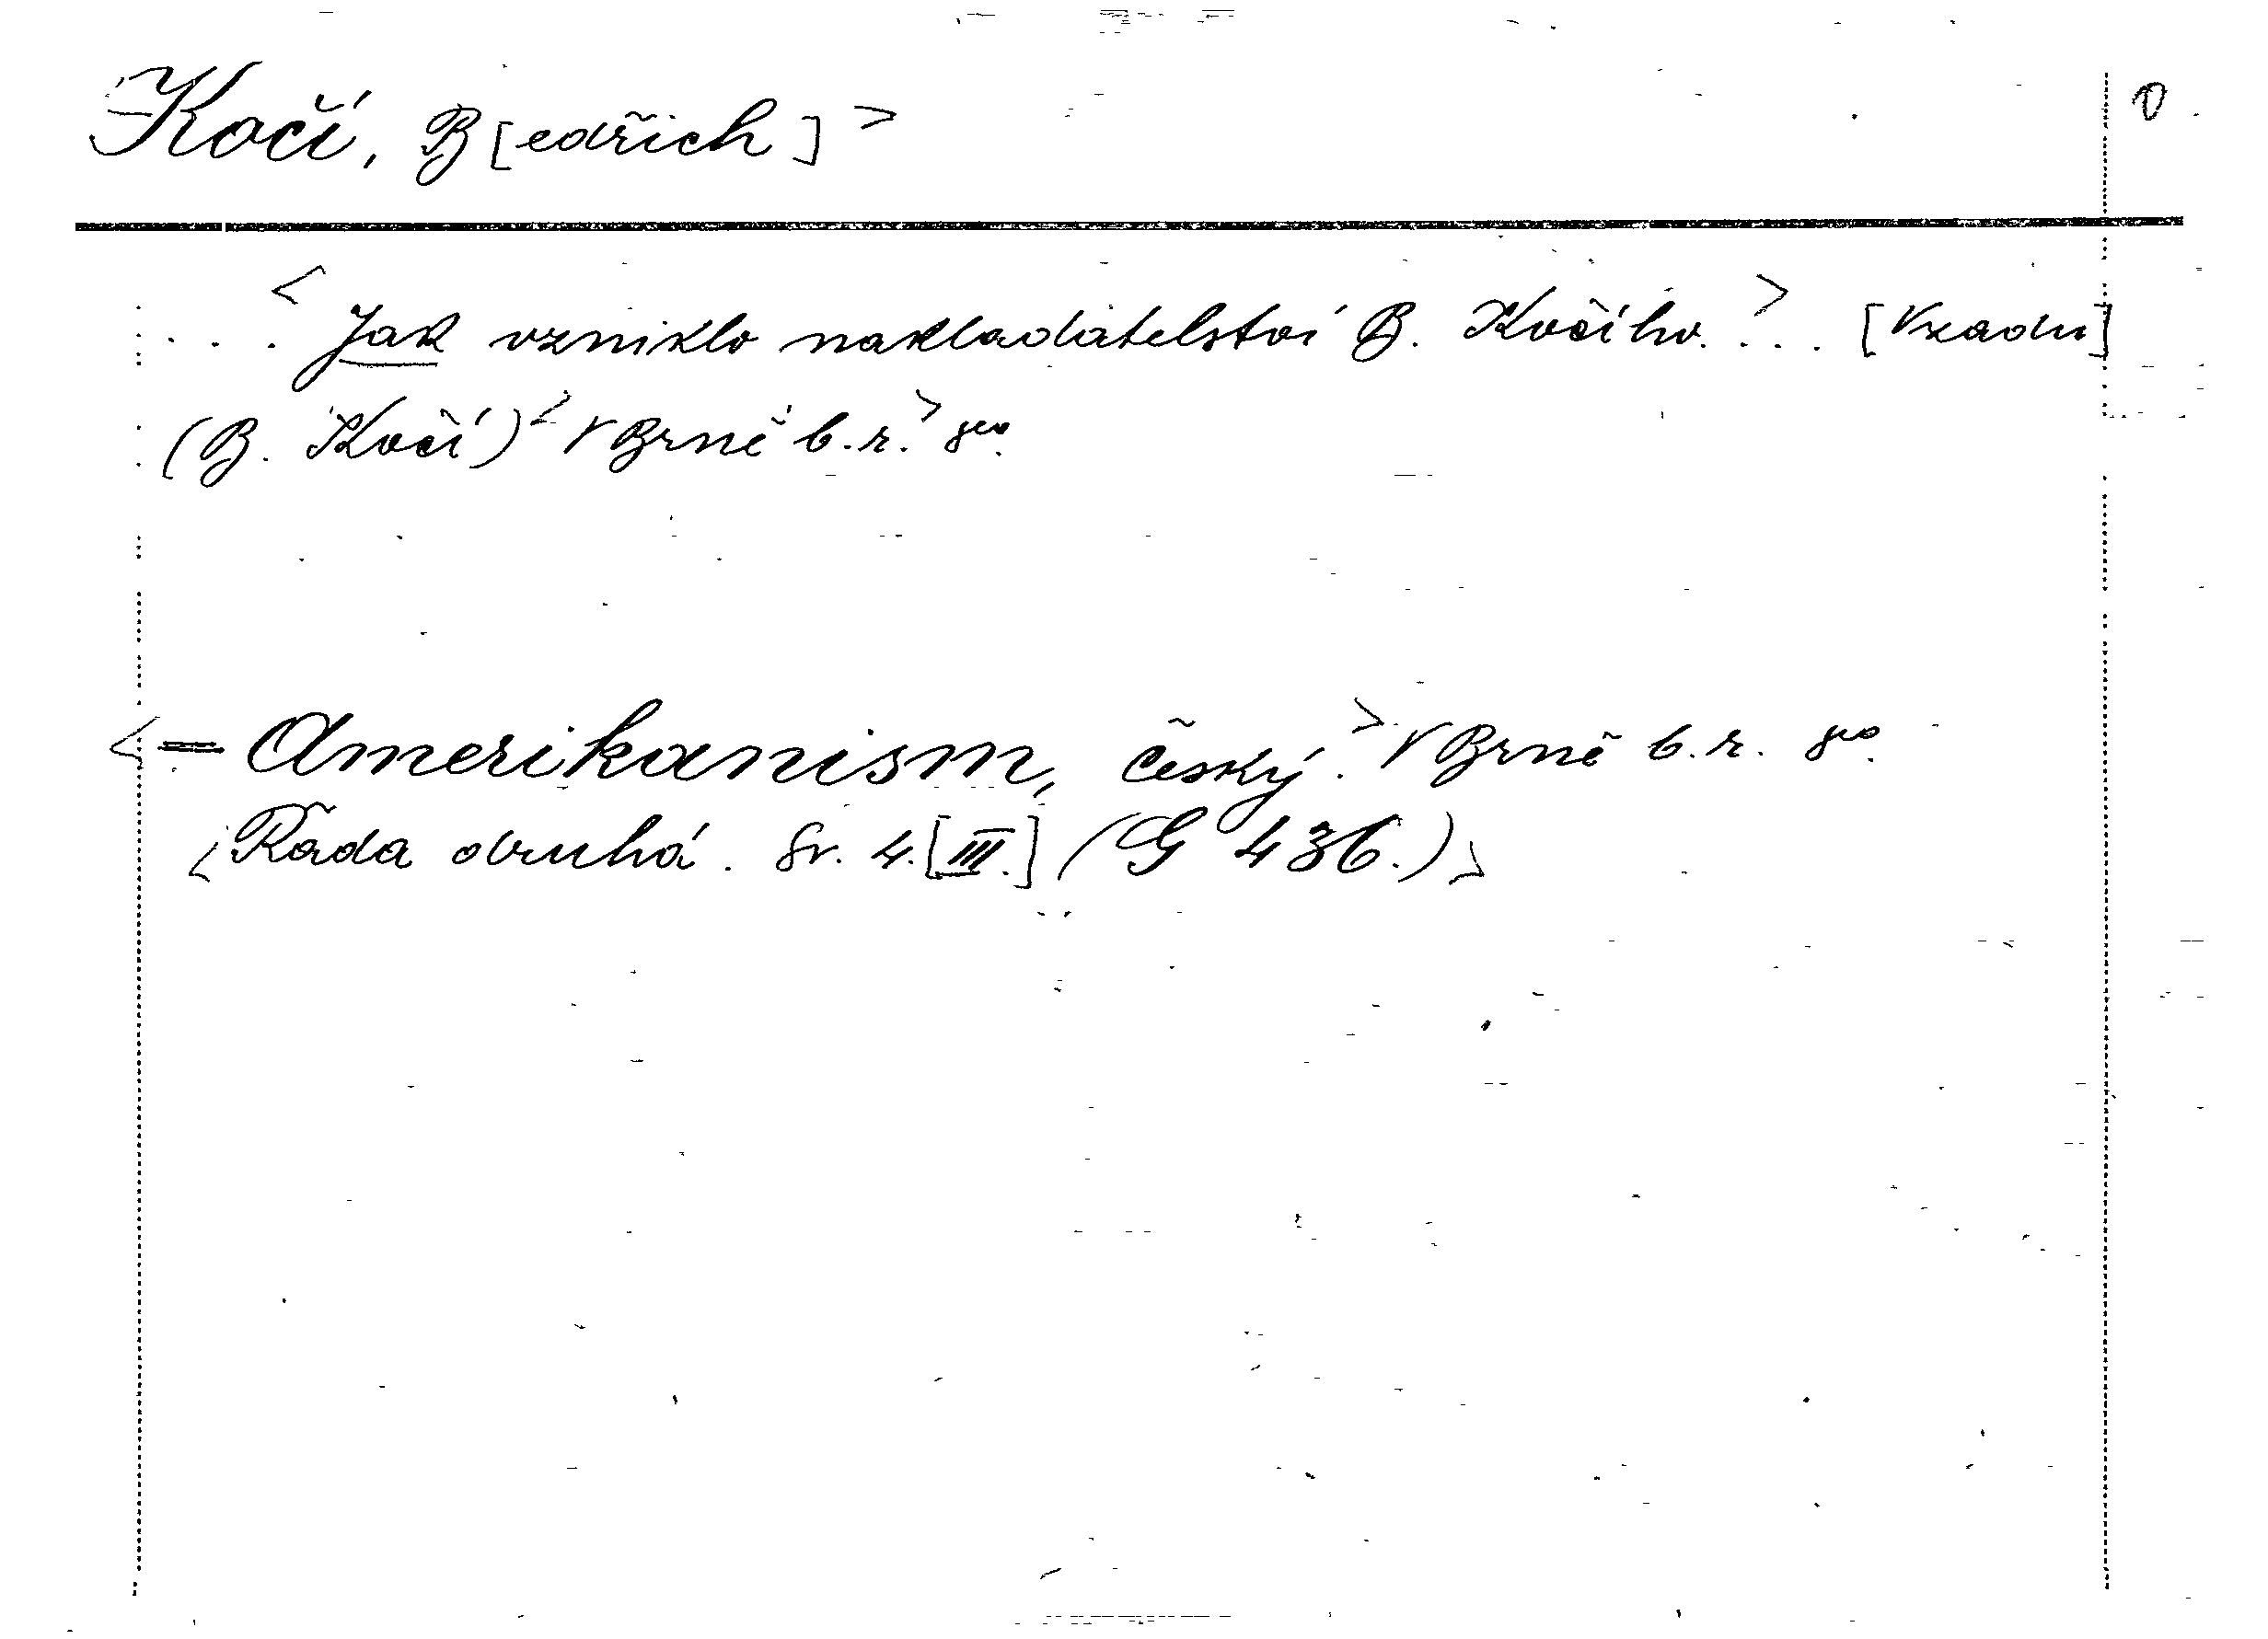 Kočí, B[edřich]> O
...<Jak vzniklo nakladatelství B. Kočího.>.. [Vzadu]
(B. Kočí) <V Brně b. r.> 8<sup>vo</sup>.
<= Amerikanism, český.> V Brně b. r. 8<sup>vo</sup>.
<Řada druhá. Sv. 4.[III.] (G 436.)>